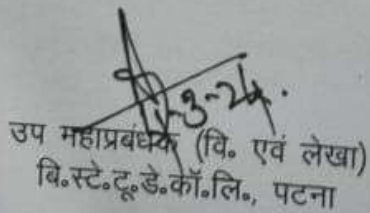 -3-24.
उप महाप्रबंधक (वि॰ एवं लेखा)
बि॰स्टे॰टू॰डे॰कॉ॰लि॰, पटना